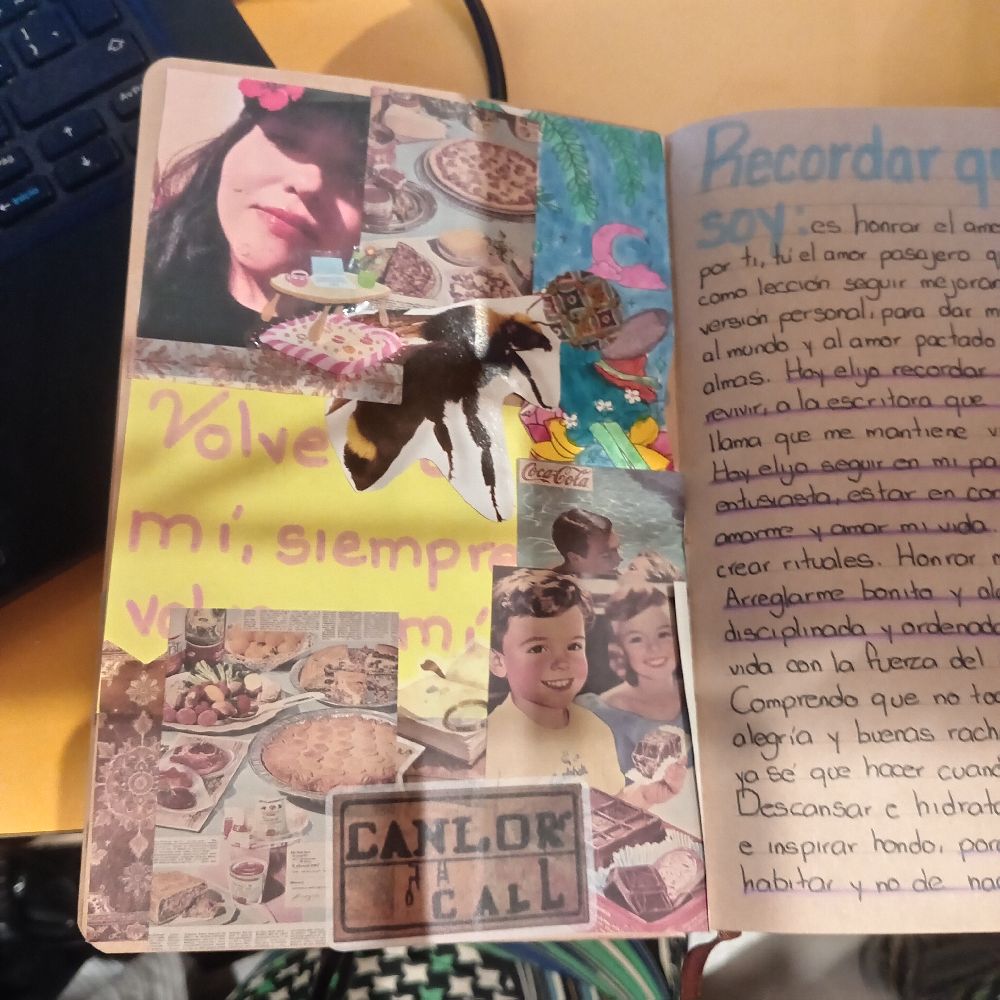 Volve
mí, siempre
mí
Coca-Cola
CANLOR
CALL
Recordar qu
soy:
es honrar el amo
por ti, tú el amor pasajero q
como lección seguir mejoran
versión personal, para dar m
al mundo y al amor pactado
almas. Hoy elijo recordar
revivir, a la escritora que
llama que me mantiene vi
Hoy elijo seguir en mi pa
entusiasta, estar en con
amarme y amar mi vida.
crear rituales. Honrar m
Arreglarme bonita y al
disciplinada y ordenada
vida con la fuerza del
Comprendo que no to
alegría y buenas rach
ya sé que hacer cuand
Descansar e hidrata
e inspirar hondo, para
habitar y no de na